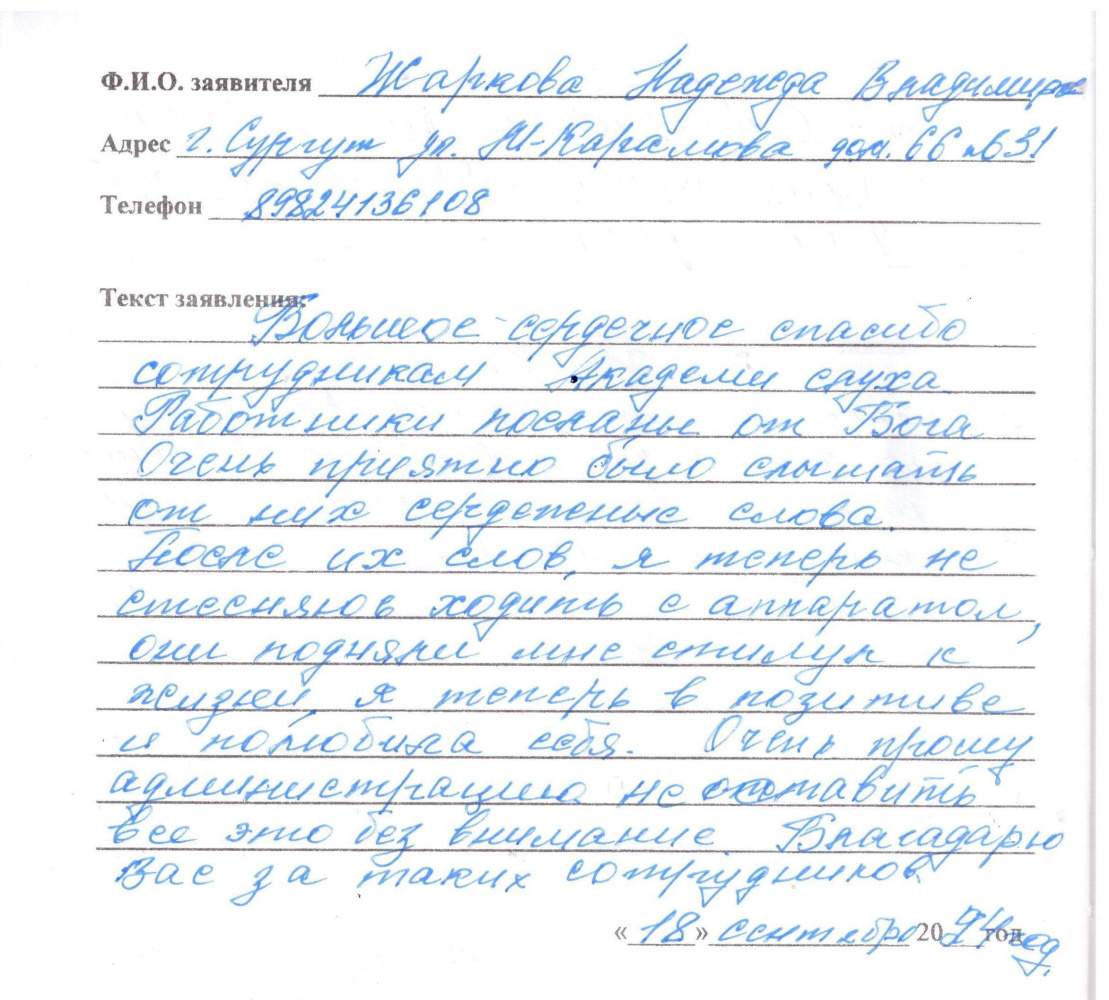 Ф.И.О. заявителя Жаркова Надежда Владимиро
Адрес г. Сургут ул. И-Каролинского дом. 66 кв 31
Телефон 89824136108
Текст заявления:
Большое сердечное спасибо
сотрудникам Академи слуха
Работники посланы от Бога
Очень приятно было слышать
от них сердечные слова.
После их слов, я теперь не
стесняюь ходить с аппаратом,
они подняли мне стимул к
жизни, я теперь в позитиве
и полюбила себя. Очень прошу
администрацию не оставить
все это без внимание Благадарю
Вас за таких сотрудников.
« 18 » сентября 20 24 год